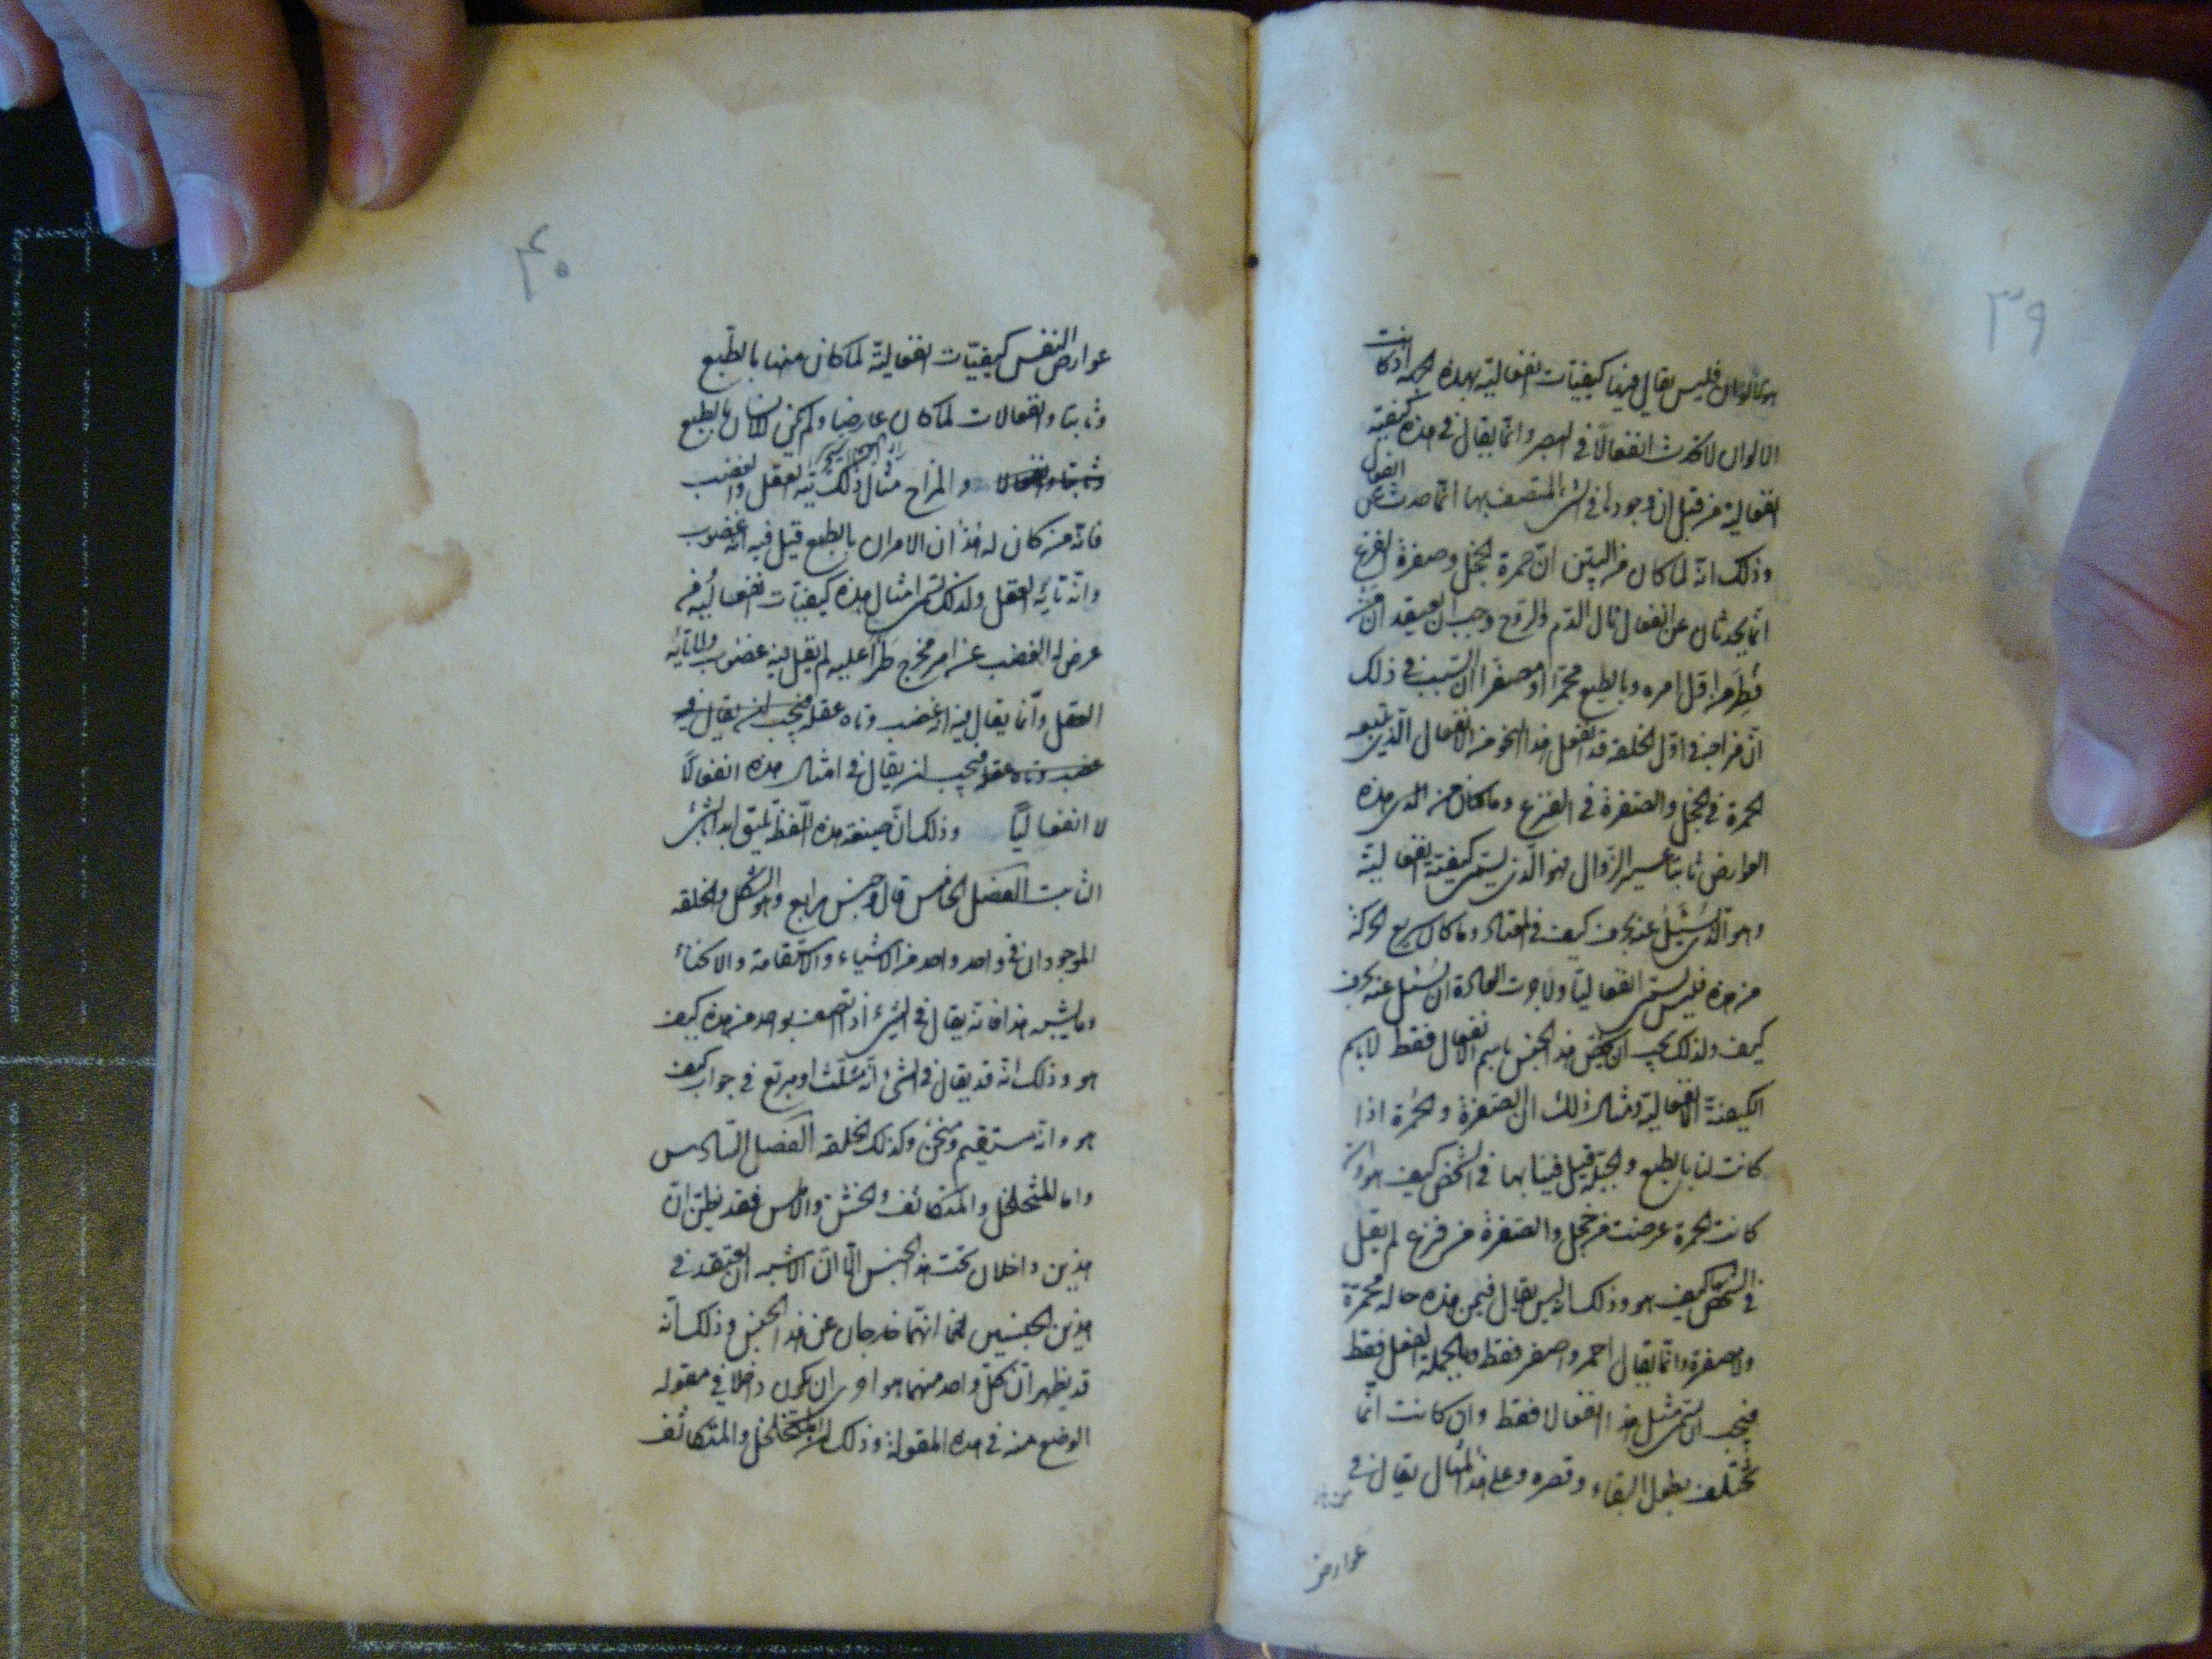 ٣٩
الالوان فليس يقال فيها كيفيات انفعالية بهذه الجهة اذ كانت
الالوان لا تحدث انفعالا فى البصر وانما يقال فى هذه كيفية
انفعالية من قبل ان وجودها فى الشئ المتصف بها انما حدث عن انفعال
وذلك انه لما كان من البين ان حمرة الخجل وصفرة الفزع
انما يحدثان عن انفعال نال الدم والروح وجب ان يعتقد ان من
فطر من اول امره وبالطبع محمرا او مصفرا ان السبب فى ذلك
ان مزاجه فى اول الخلقة قد انفعل هذا النحو من الانفعال الذى يتبعه
الحمرة فى الخجل والصفرة فى الفزع وما كان من هذه
العوارض ثابتا عسير الزوال فهو الذى يسمى كيفية انفعالية
وهو الذى يسئل عنه بحرف كيف فى وما كان سريع الحركة
من هذه فليس يسمى انفعاليا ولا جرت العادة ان يسئل عنه بحرف
كيف ولذلك يجب ان يخص هذا الجنس باسم الانفعال فقط لا باسم
الكيفية الانفعالية ومثال ذلك ان الصفرة والحمرة اذا
كانت لنا بالطبع والجبلة قيل فينا بها فى الشخص كيف هو وان
كانت الحمرة عرضت من خجل والصفرة من فزع لم يقل
فى الشخص بها كيف هو وذلك انه ليس يقال فيمن هذه حاله محمرة
ولا مصفرة وانما يقال احمر واصفر فقط وبالجملة انفعل فقط
فيجب ان يسمى مثل هذا انفعالا فقط وان كانت انما
تختلف بطول البقاء وقصره وعلى هذا المثال يقال فى
عوارض
٤٠
عوارض النفس كيفيات انفعالية لما كان منها بالطبع
وثابتا وانفعالات لما كان عارضا ولم يكن للانسان بالطبع
والمزاج مثال ذلك تيه العقل والغضب
فانه من كان له هذان الامران بالطبع قيل فيه انه غضوب
وانه تائه العقل ولذلك تسمى امثال هذه كيفيات انفعالية ومن
عرض له الغضب عن امر مخرج طرأ عليه لم يقل فيه غضوب ولا تائه
العقل وانما يقال فيه انه غضب وتاه عقله فيجب ان يقال فيه
غضب وتاه عقله فيجب ان يقال فى امثال هذه انفعالا
لا انفعاليا وذلك ان صيغة هذه اللفظة تليق ابدا بالشئ
الثابت الفصل الخامس قال وجنس رابع وهو الشكل والخلقة
الموجودان فى واحد واحد من الاشياء والاستقامة والانحناء
وما يشبه هذا فانه يقال فى الشئ اذا اتصف بواحد من هذه كيف
هو وذلك انه قد يقال فى الشئ انه مثلث او مربع فى جواب كيف
هو وانه مستقيم ومنحن وكذلك الخلقة الفصل السادس
واما المتخلخل والمتكاثف والخشن والاملس فقد يظن ان
هذين داخلان تحت هذا الجنس الا ان الاشبه ان يعتقد فى
هذين الجنسين انهما خارجان عن هذا الجنس وذلك انه
قد يظهر ان كل واحد منهما هو احرى ان يكون داخلا فى مقولة
الوضع منه فى هذه المقولة وذلك ان المتخلخل والمتكاثف